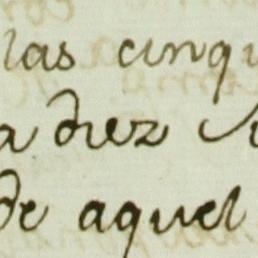 las cinqu
a diez
de aquel